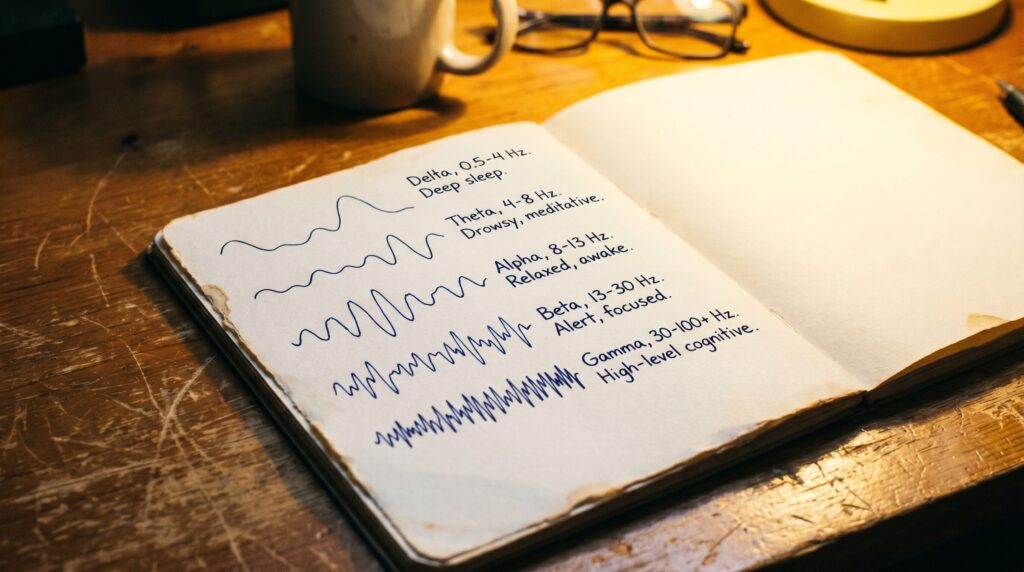 Delta, 0.5-4 Hz.
Deep sleep.
Theta, 4-8 Hz.
Drowsy, meditative.
Alpha, 8-13 Hz.
Relaxed, awake.
Beta, 13-30 Hz.
Alert, focused.
Gamma, 30-100+ Hz.
High-level cognitive.